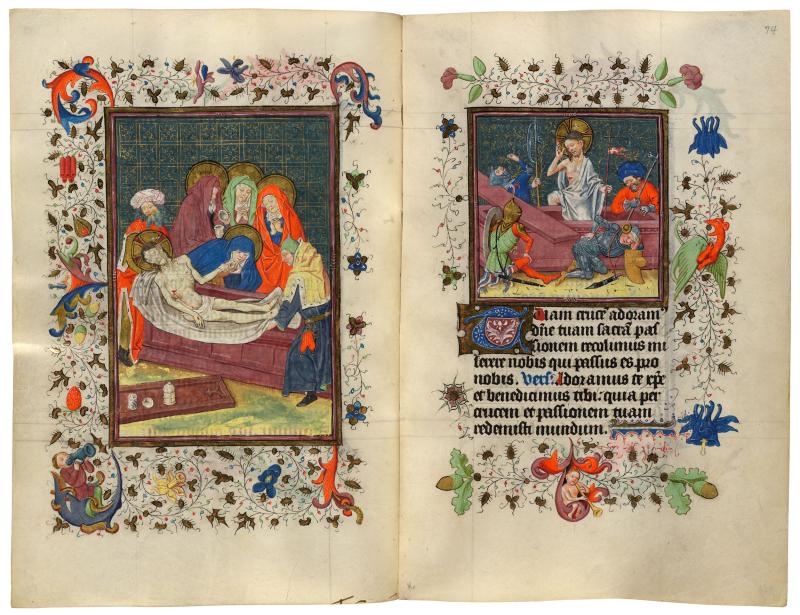 94
Tuam crucē adoram
dñe tuam sacrā pas
sionem recolimus mi
serere nobis qui passus es pro
nobis. Vers. Adoramus te xp̄e
et benedicimus tibi: quia per
crucem et passionem tuam
redemisti mundum.